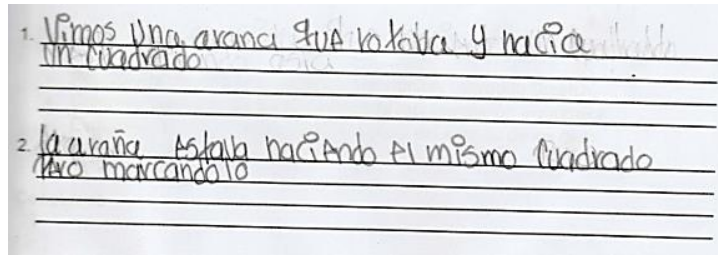 1. Vimos Una arana que rotava y hacia
un cuadrado
2. la araña estava haciendo el mismo cuadrado
pero marcandolo